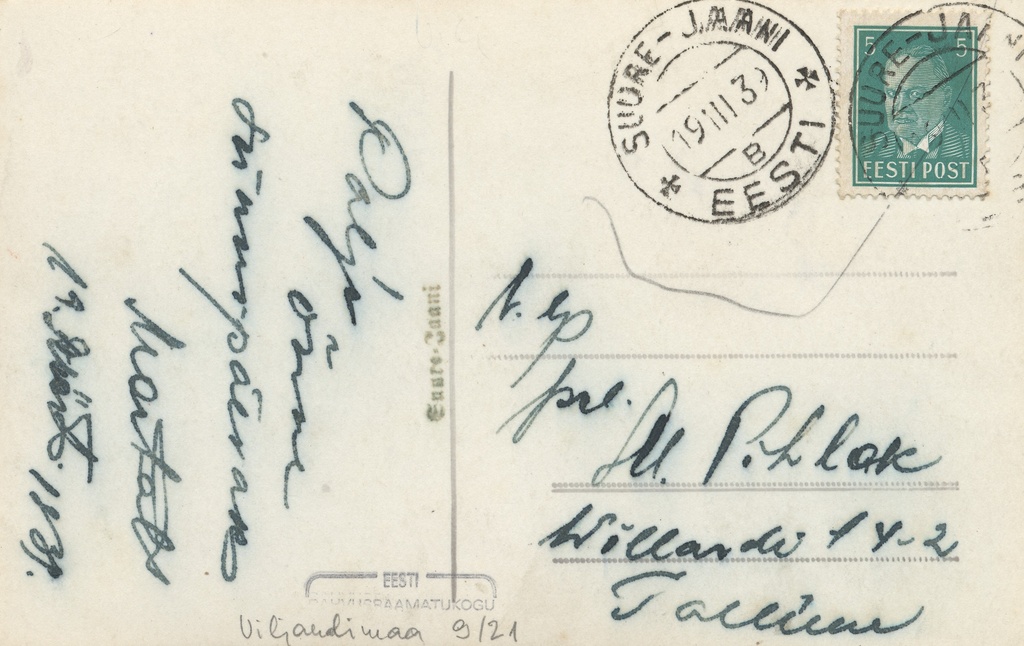 Palju
õnne
sünnipäevaks
19. Märts. 1939.
Suure-Jaani
SUURE-JAANI
19 III 39
B
EESTI
5 5
EESTI POST
SUURE-JA
prl.
M. Pihlak
Willardi 14-2
Tallinn
EESTI
RAHVUSRAAMATUKOGU
Viljandimaa 9/21